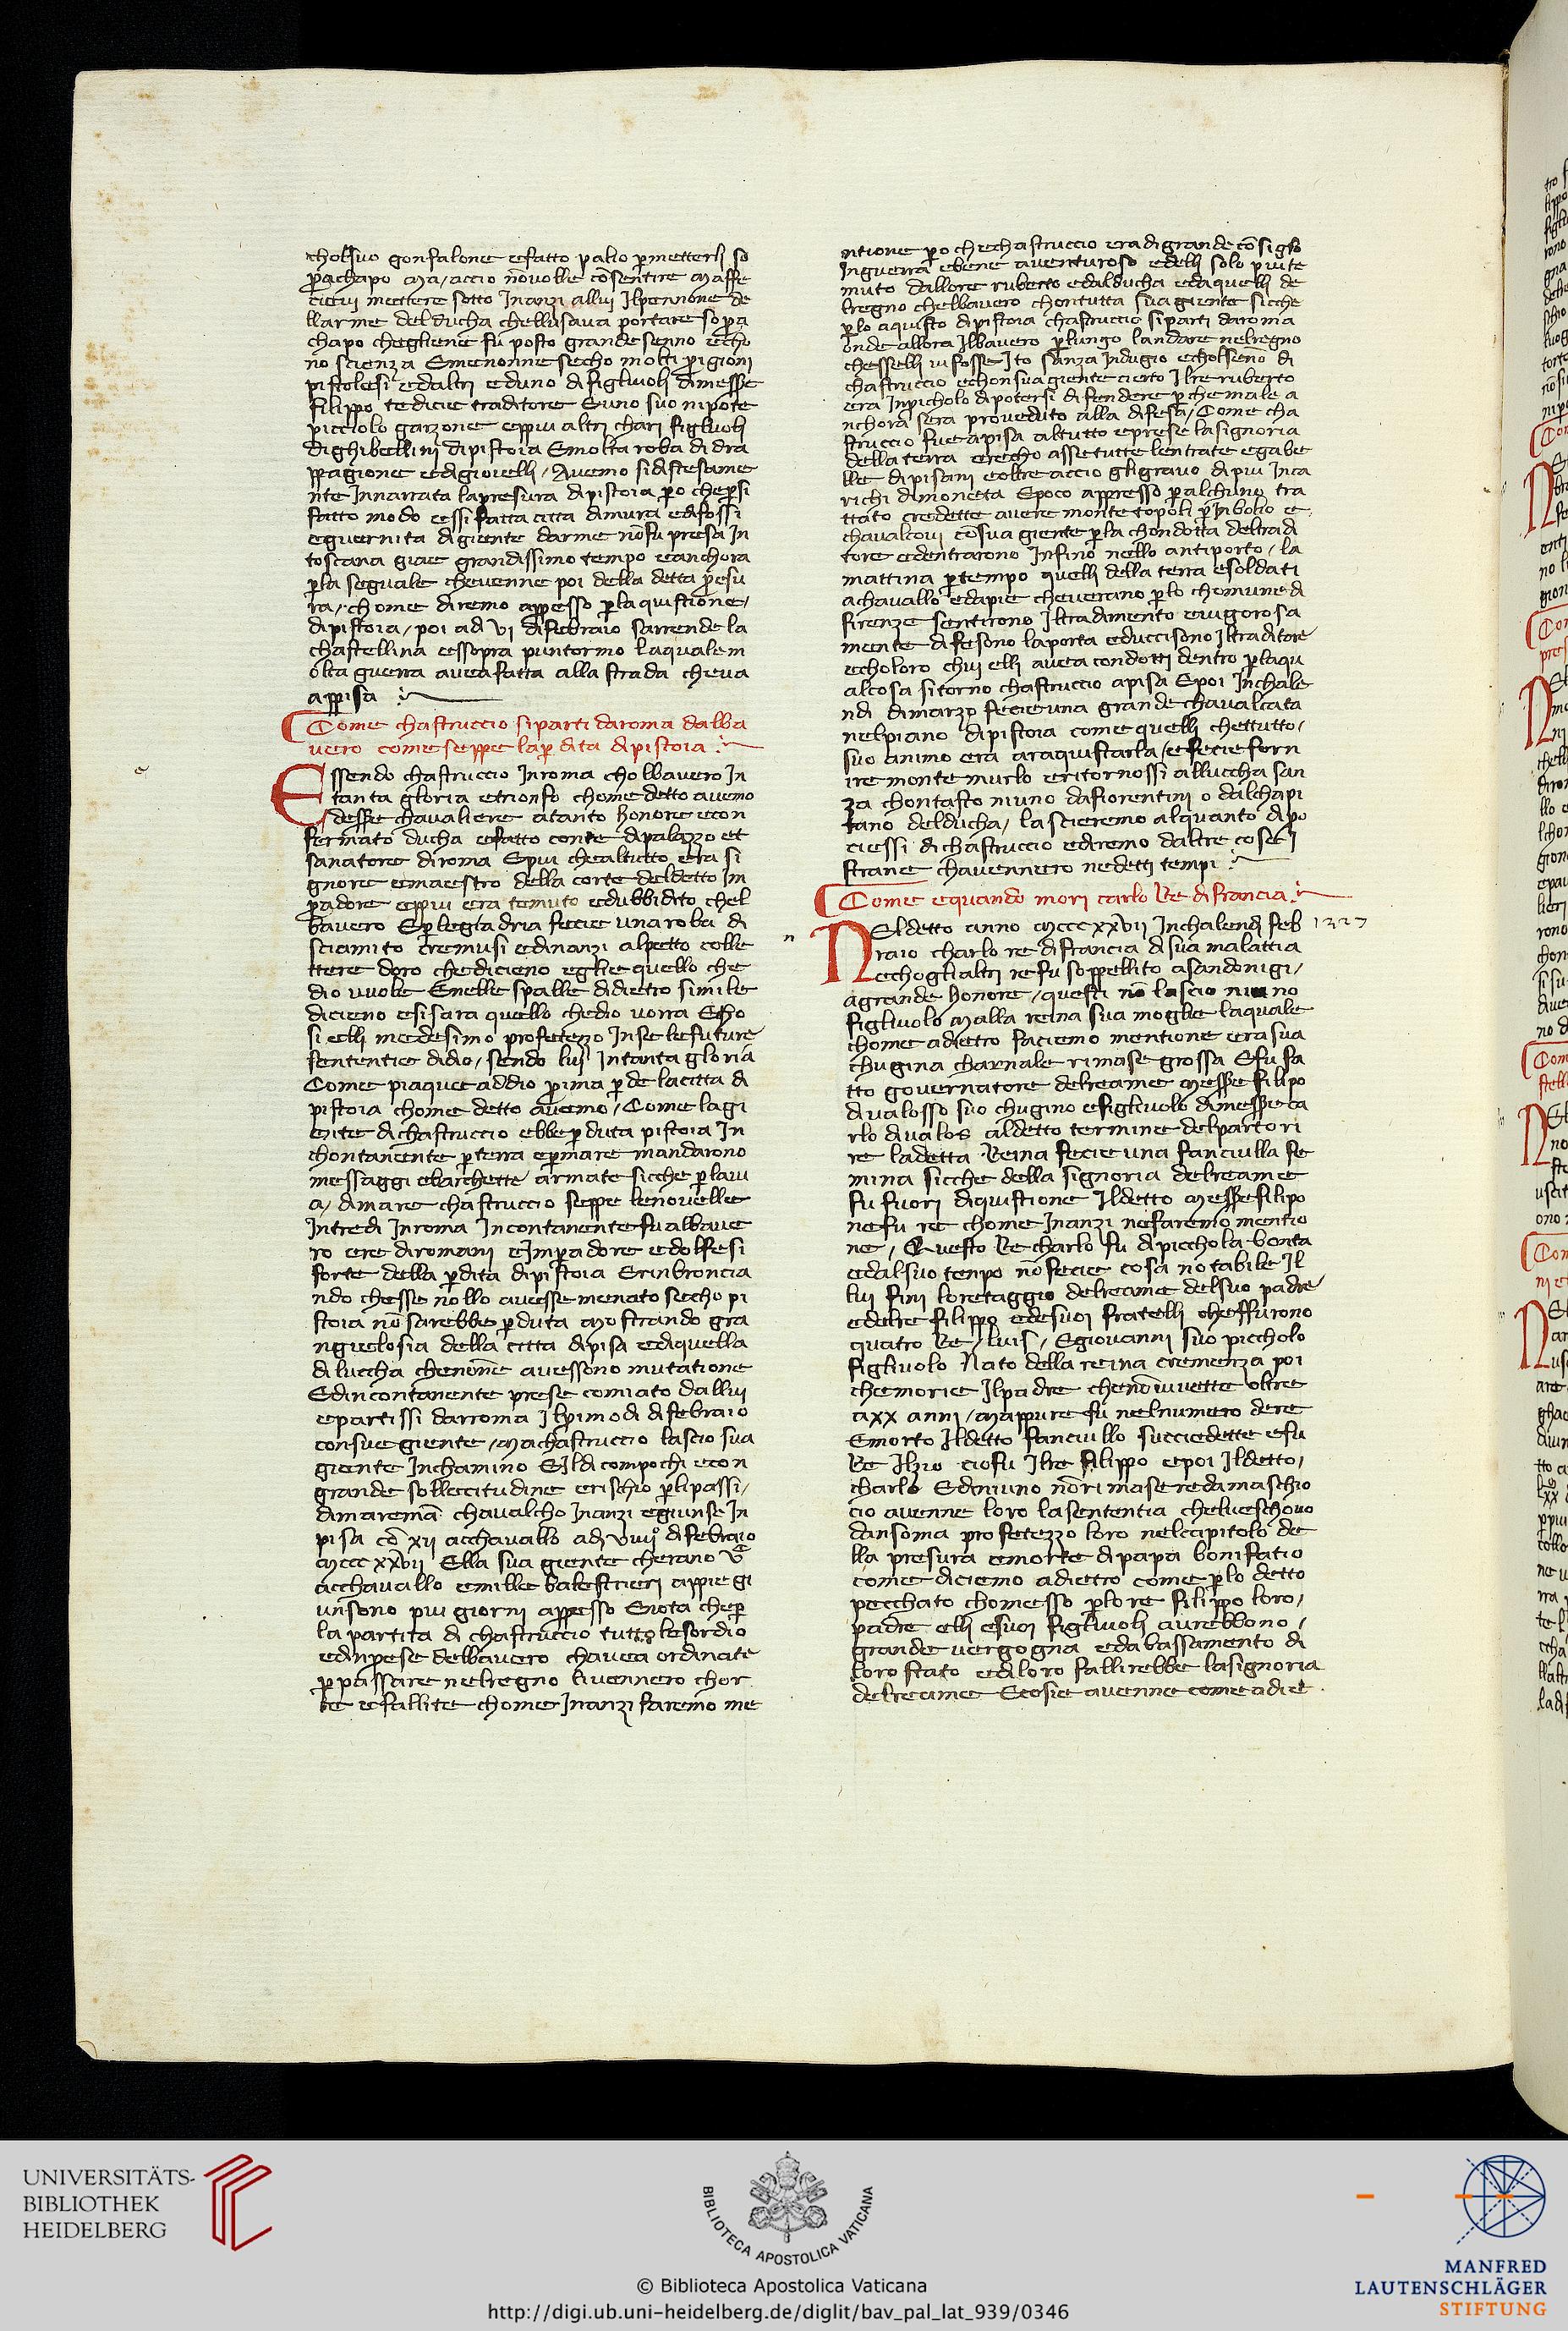 chol suo gonfalone e fatto palio p metterlj so
pa chapo Ma/ accio nō volle cōsentire Messe
cieui mettere sotto Inanzi allui Il pennone de
llarme del ducha chellusaua portare sopra
chapo chegliene fu posto grande senno echo
noscienza Emenonne secho molti prigioni
pistolesi edaltri eduno di figliuoli dimesse
filippo tedicie traditore Euno suo nipote
picciolo garzone eppiu altri chari figliuoli
dighibellini dipistoia Emolta roba didra
ppagione edigioielli / Auemo si distesame
nte Innarrata lapresura dipistoia po chepsi
fatto modo essi fatta citta dimura edifossi
eguernita digiente darme nō fu presa In
toscana giae grandissimo tempo eanchora
pla seguale cheuenne poi della detta presu
ra / chome diremo appesso pla quistione /
dipistoia / poi adi vi difebraio sarrende la
chastellina essopra puntormo laquale m
olta guerra auea fatta alla strada cheua
appisa
Come chastruccio siparti daroma dalba
uero come seppe la pdita dipistoia
Essendo chastruccio Inroma cholbauero In
tanta gloria etrionfo chome detto auemo
desse chaualiere atanto honore econ
fermato ducha efatto conte dipalazzo et
sanatore diroma Epiu chealtutto era si
gnore emaestro della corte deldetto Im
padore eppiu era temuto edubbidito chel
bauero Ep legiadria fecie una roba di
sciamito cremusi edinanzi alpetto colle
ttere doro chedicieno eglie quello che
dio uuole Enelle spalle didietro simile
dicieno esisara quello chedio uorra Echo
si elli medesimo profetezzo Inse lefuture
sententie didio / sendo luj Intanta gloria
Come piaque addio prima pde lacitta di
pistoia chome detto auemo / Come lagi
ente dichastruccio ebbe pduta pistoia In
chontanente pterra epmare mandarono
messaggi ebarchette armate sicche plaui
a / dimare chastruccio seppe lenouelle
Intredi Inroma Incontanente fu albaue
ro ere diromani eImpadore edolfesi
forte della pdita dipistoia Erinbroncia
ndo chesse nollo auesse menato secho pi
stoia nō sarebbe pduta Mostrando gra
ngielosia della citta dipisa ediquella
di luccha chenōne auessono mutatione
Edincontanente prese comiato dallui
epartissi darroma Ilprimo di difebraio
consue giente / Machastruccio lascio sua
giente Inchamino Eildi compochi econ
grande sollecitudine erischio plipassi /
dimarema chaualcho Inanzi egiunse In
pisa cō xij acchauallo adi viiij difebraio
Mcccxxvij Ella sua giente cherano vc
acchauallo emille balestrieri appiegi
unsono piu giorni appesso Enota chep
la partita di chastruccio tutto lesordio
edinprese delbauero chauea ordinate
ppassare nelregno liuennero chor
te efallite chome Inanzi faremo me
ntione po chechastruccio era digrande cōsiglo
Inguerra ebene auenturoso edelli solo piu te
muto dallore ruberto edalducha edaquelli de
lregno chelbauero chontutta sua giente sicche
plo aquisto dipistoia chastruccio siparti daroma
onde allora Ilbauero plungo landare nelregno
chesselli ui fosse Ito sanza Indugio echolseno di
chastruccio echonsua giente cierto Ilre ruberto
era Inpicholo dipotersi difendere pchemale a
nchora sera proueduto alla difesa / Come cha
struccio fue apisa altutto eprese la signoria
della terra erecho asse tutte lentrate egabe
lle dipisanj eoltre accio gligrauo dipiu Inca
richi dimoneta Epoco appresso palchuno tra
ttato credette auere montetopoli pInbolio e
chaualcoui cōsua giente pla chondotta deltradi
tore edentrarono Infino nello antiporto / la
mattina ptempo quelli della terra esoldati
achauallo edapie cheuerano plo chomunedi
firenze sentirono Iltradimento euigorosa
mente difesono laporta educcisono Iltraditore
echoloro chui elli auea condotti dentro plaqu
alcosa sitorno chastruccio apisa Epoi Inchale
ndi dimarzo fecie una grande chaualcata
nelpiano dipistoia come quelli chettutto /
suo animo era araquistarla / efecie forn
ire monte murlo eritornossi alluccha san
za chontasto niuno dafiorentini o dalchapi
tano delducha / lascieremo alquanto dipo
ciessi dichastruccio ediremo daltre cosej
strane chauennero nedetti tempi
Come equando mori carlo Re difrancia
Neldetto anno Mcccxxvij Inchalendi feb 1327
raio charlo re difrancia disua malattia
echoglialtri re fu soppellito asandonigi /
agrande honore / questi nō lascio niuno
figliuolo Malla reina sua moglie laquale
chome adietro faciemo mentione era sua
chugina charnale rimase grossa Efu fa
tto gouernatore delreame Messe filipo
diualosso suo chugino efigliuolo dimesse ca
rlo diualos aldetto termine delpartori
re ladetta Reina fecie una fanciulla fe
mina sicche della signoria delreame
fu fuori diquistione Ildetto Messe filipo
nefu re chome Inanzi nefaremo mentio
ne / Questo Re charlo fu dipicchola bonta
edalsuo tenpo nō fecie cosa notabile Il
lui finj loretaggio delreame delsuo padre
edelre filippo edesuoj fratelli cheffurono
quatro Re / luis / Egiouanni suo piccholo
figliuolo Nato della reina cremenza poi
chemorie Ilpadre chenō iuuette oltre
axx anni / Mappure fu nelnumero dere
Emorto Ildetto fanciullo succiedette efu
Re Ilzio ciofu Ilre filippo epoi Ildetto /
charlo Ediniuno nō rimase reda maschio
cio auenne loro lasententia cheluescouo
dansoma profetezzo loro nelcapitolo de
lla presura emorte dipapa bonifatio
come diciemo adietro come plo detto
pecchato chomesso plo re filippo loro /
padre elli esuoi figliuoli aurebbono /
grande uergogna edabassamento di
loro stato ediloro fallirebbe lasignoria
delreame Ecosie auenne come adie
UNIVERSITÄTS-
BIBLIOTHEK
HEIDELBERG
BIBLIOTECA APOSTOLICA VATICANA
© Biblioteca Apostolica Vaticana
http://digi.ub.uni-heidelberg.de/diglit/bav_pal_lat_939/0346
MANFRED
LAUTENSCHLÄGER
STIFTUNG